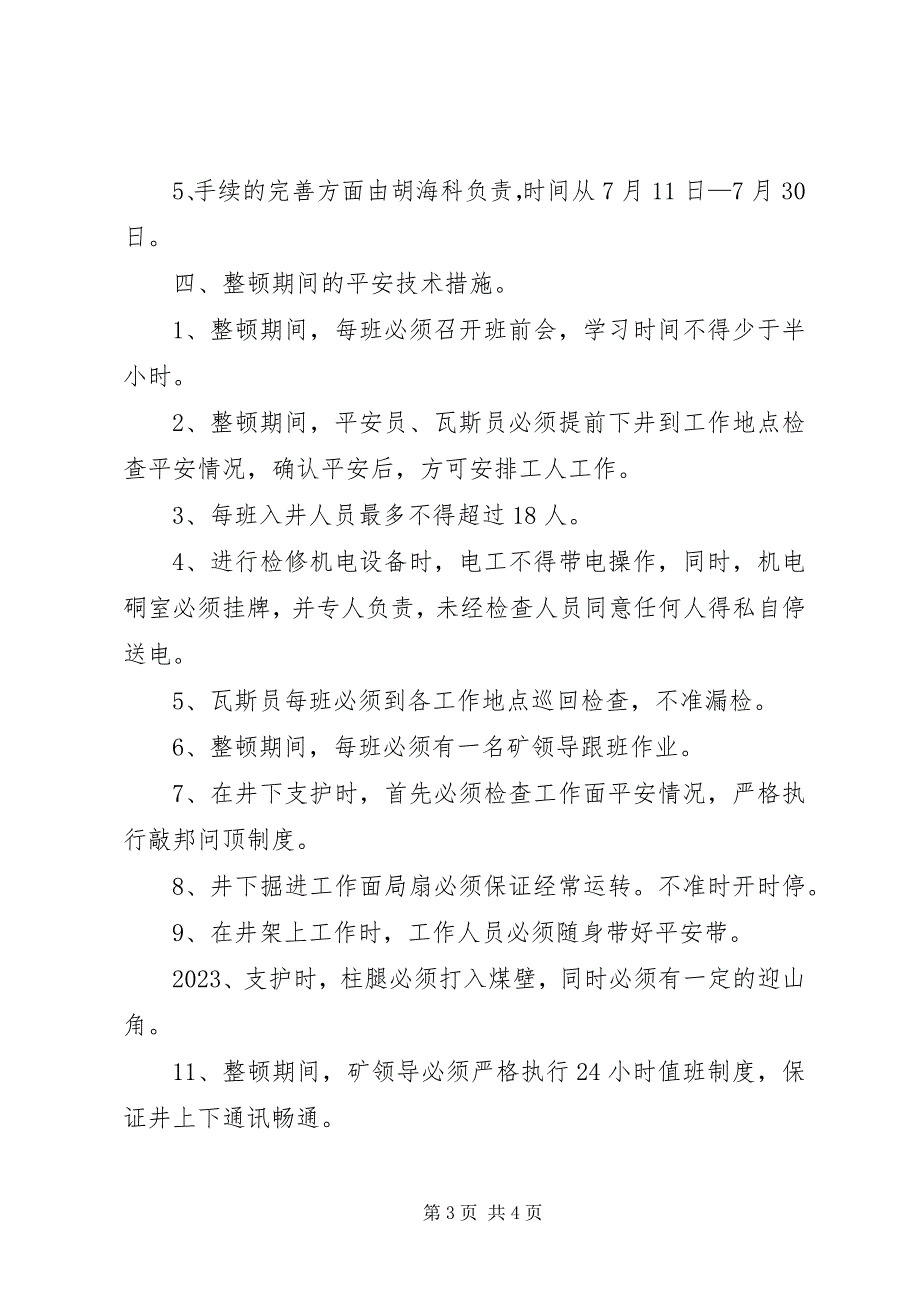 5、手续的完善方面由胡海科负责，时间从 7 月 11 日—7 月 30
日。
四、整顿期间的平安技术措施。
1、整顿期间，每班必须召开班前会，学习时间不得少于半
小时。
2、整顿期间，平安员、瓦斯员必须提前下井到工作地点检
查平安情况，确认平安后，方可安排工人工作。
3、每班入井人员最多不得超过 18 人。
4、进行检修机电设备时，电工不得带电操作，同时，机电
硐室必须挂牌，并专人负责，未经检查人员同意任何人得私自停
送电。
5、瓦斯员每班必须到各工作地点巡回检查，不准漏检。
6、整顿期间，每班必须有一名矿领导跟班作业。
7、在井下支护时，首先必须检查工作面平安情况，严格执
行敲邦问顶制度。
8、井下掘进工作面局扇必须保证经常运转。不准时开时停。
9、在井架上工作时，工作人员必须随身带好平安带。
2023、支护时，柱腿必须打入煤壁，同时必须有一定的迎山
角。
11、整顿期间，矿领导必须严格执行 24 小时值班制度，保
证井上下通讯畅通。
第 3 页 共 4 页